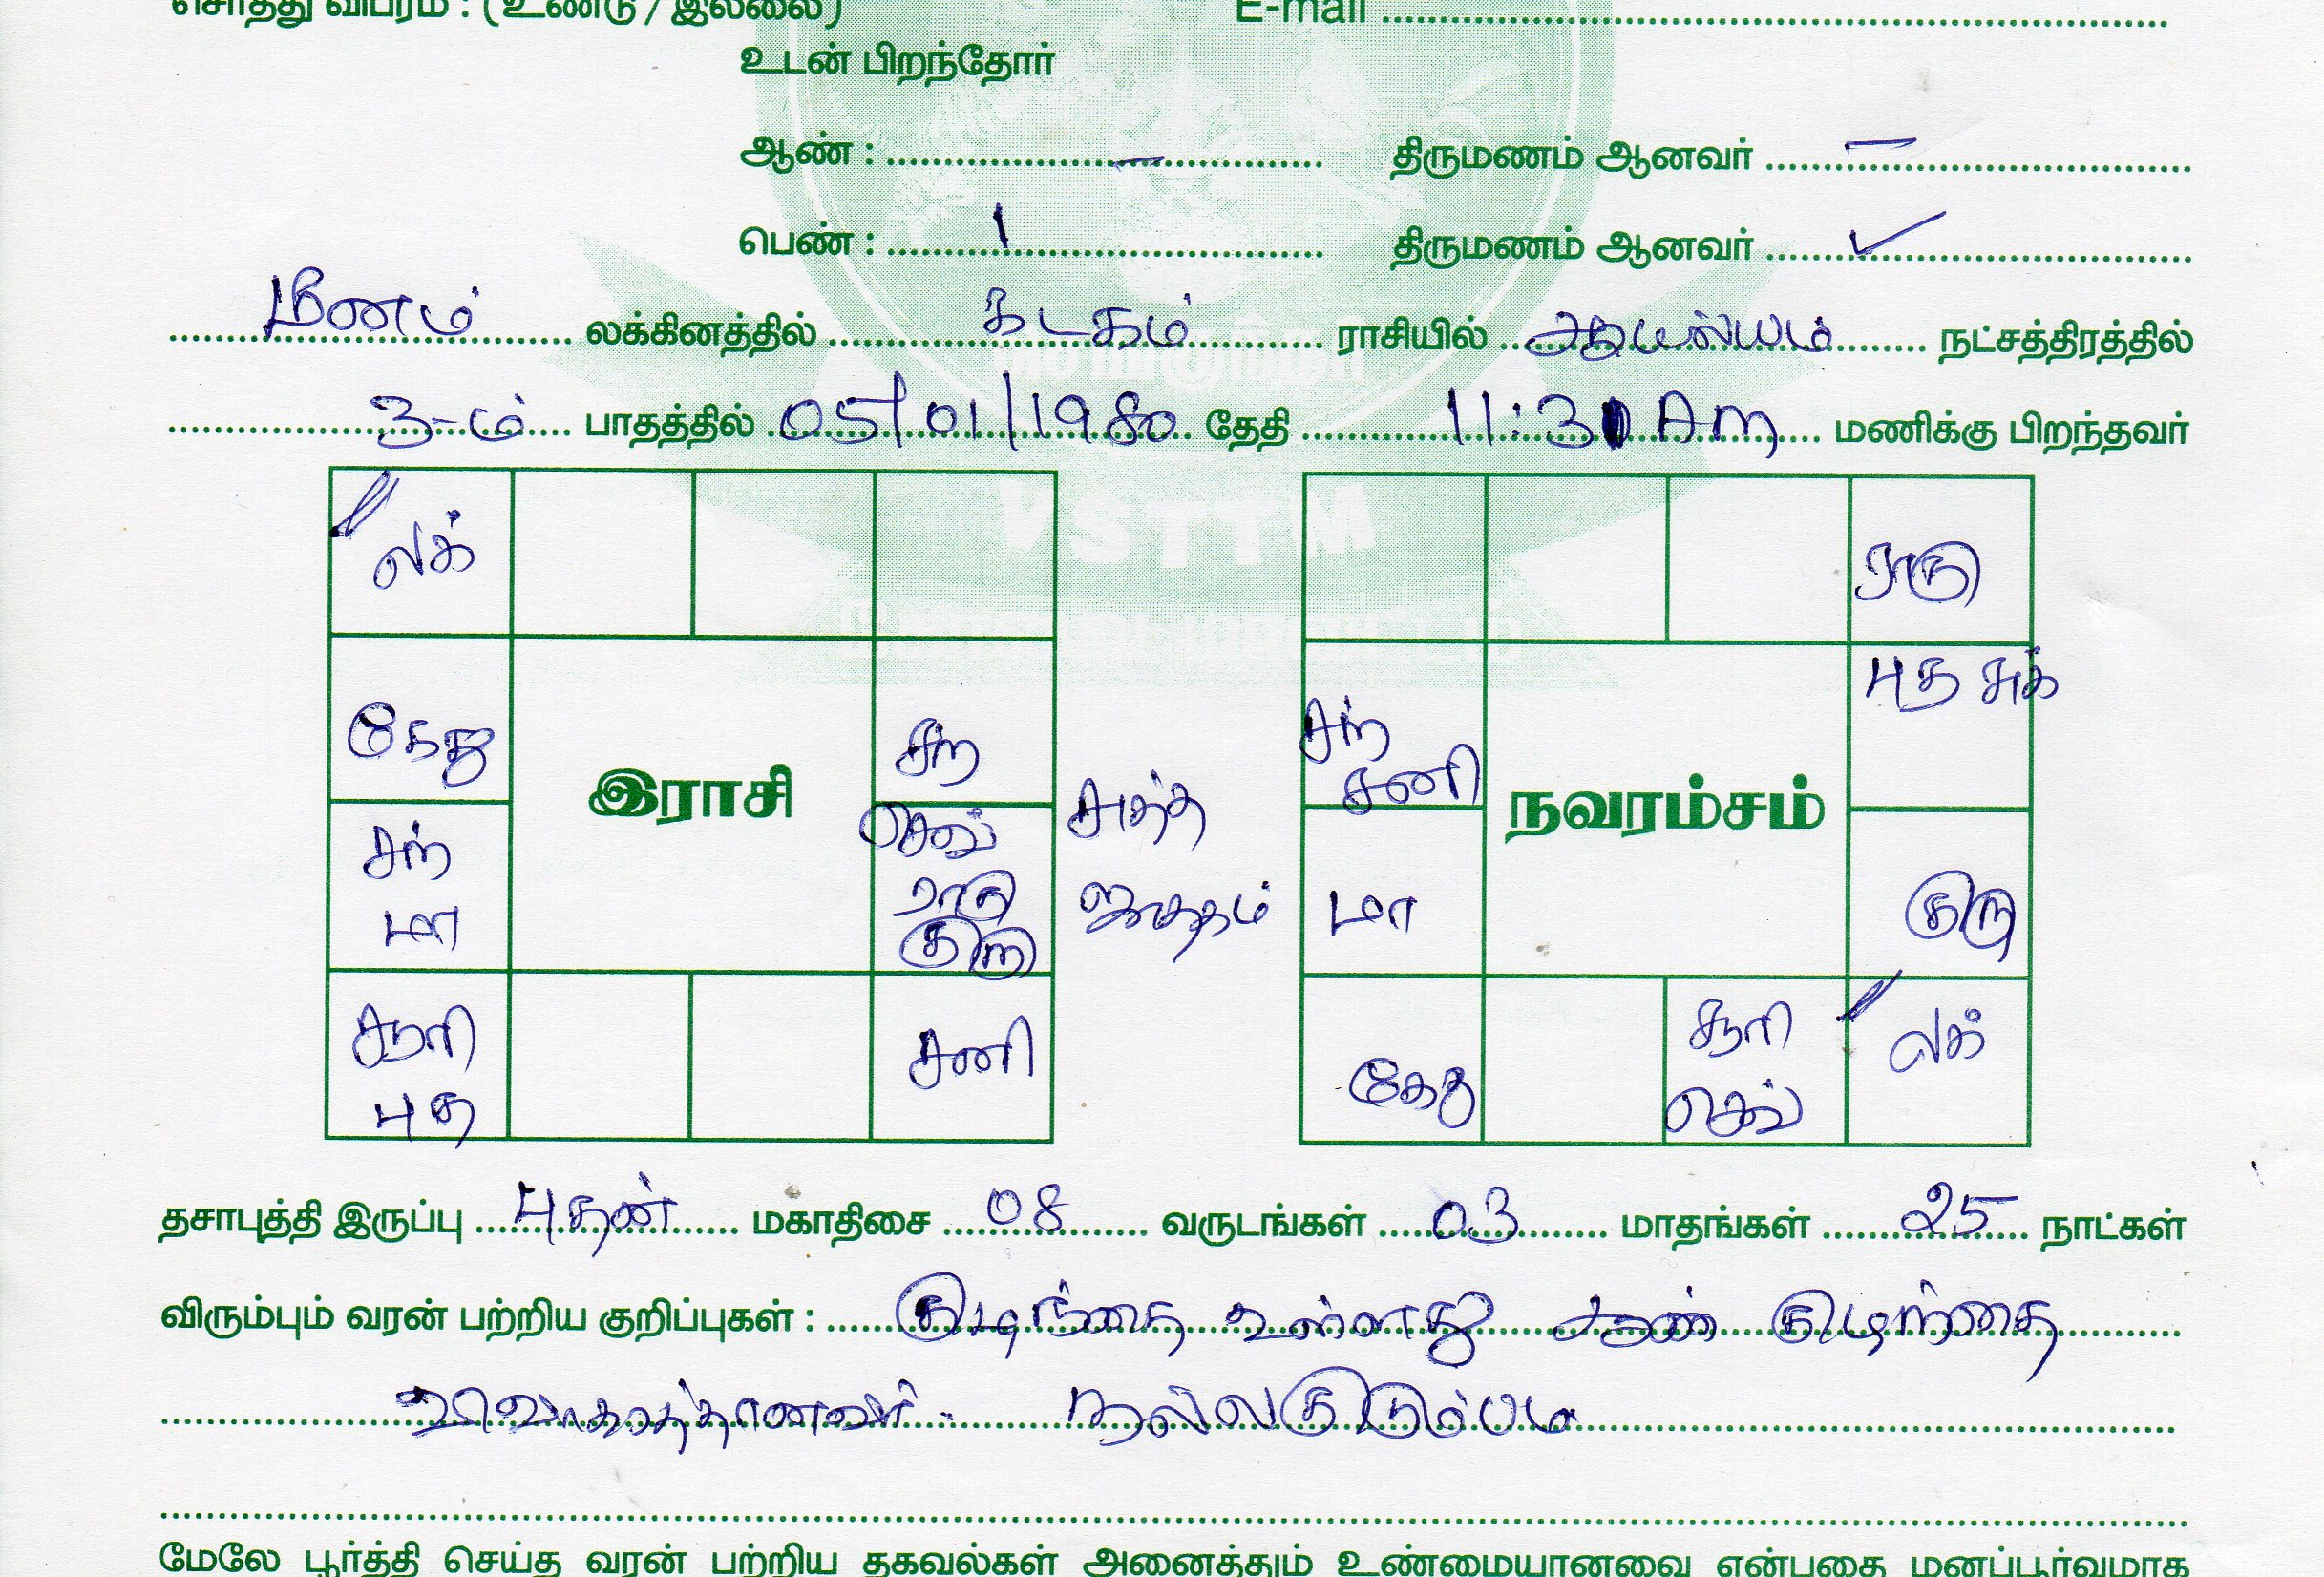 சொத்து விபரம் : (உண்டு / இல்லை) E-mail
உடன் பிறந்தோர்
ஆண் : – திருமணம் ஆனவர் –
பெண் : 1 திருமணம் ஆனவர் ✓
மீனம் லக்கினத்தில் கடகம் ராசியில் ஆயில்யம் நட்சத்திரத்தில்
3-ம் பாதத்தில் 05/01/1980 தேதி 11:30 Am மணிக்கு பிறந்தவர்
VSTTM
லக்
ராகு
புத சுக்
கேது
சந்
சந்
சனி
இராசி
நவரம்சம்
செவ்
சுத்த
சந்
ராகு
ஜாதகம்
மா
மா
குரு
குரு
சூரி
சனி
சூரி
லக்
புத
கேது
செவ்
தசாபுத்தி இருப்பு புதன் மகாதிசை 08 வருடங்கள் 03 மாதங்கள் 25 நாட்கள்
விரும்பும் வரன் பற்றிய குறிப்புகள் : குழந்தை உள்ளது ஆண் குழந்தை
விவாகரத்தானவர். நல்லகுடும்பம்
மேலே பூர்த்தி செய்த வரன் பற்றிய தகவல்கள் அனைத்தும் உண்மையானவை என்பதை மனப்பூர்வமாக